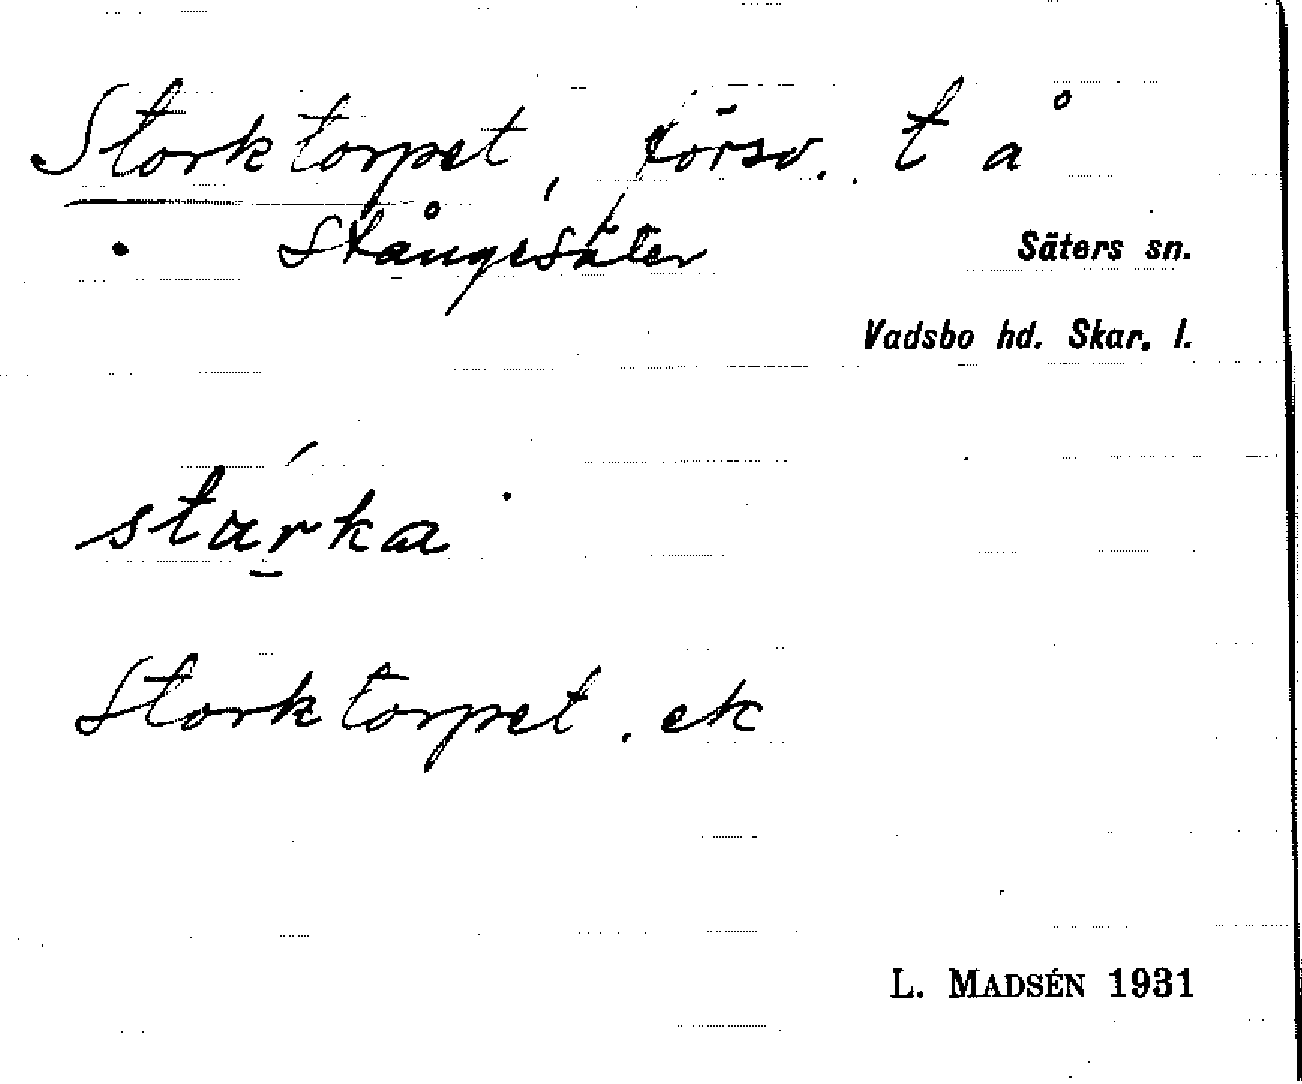 Storktorpet, försv. t å
Stångesäter
Säters sn.
Vadsbo hd. Skar. l.
starka
Storktorpet. ek
L. MADSÉN 1931